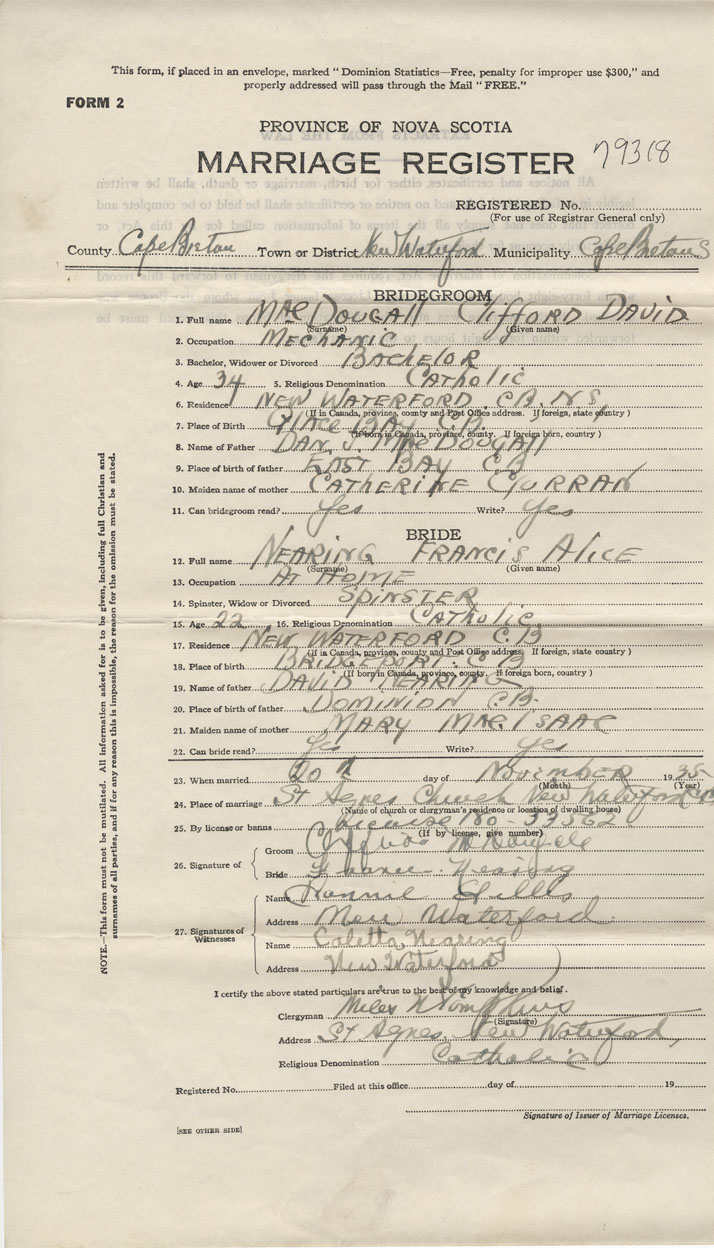 This form, if placed in an envelope, marked "Dominion Statistics—Free, penalty for improper use $300," and
properly addressed will pass through the Mail "FREE."
FORM 2
PROVINCE OF NOVA SCOTIA
MARRIAGE REGISTER 79318
REGISTERED No.
(For use of Registrar General only)
County Cape Breton Town or District New Waterford Municipality Cape Breton S
BRIDEGROOM
1. Full name MacDougall Clifford David
(Surname) (Given name)
2. Occupation Mechanic
3. Bachelor, Widower or Divorced Bachelor
4. Age 34 5. Religious Denomination Catholic
6. Residence New Waterford C.B. N.S.
(If in Canada, province, county and Post Office address. If foreign, state country)
7. Place of Birth Glace Bay C.B.
(If born in Canada, province, county. If foreign born, country)
8. Name of Father Dan. J. MacDougall
9. Place of birth of father East Bay C.B
10. Maiden name of mother Catherine Curran
11. Can bridegroom read? Yes Write? Yes
BRIDE
12. Full name Nearing Francis Alice
(Surname) (Given name)
13. Occupation At Home
14. Spinster, Widow or Divorced Spinster
15. Age 22 16. Religious Denomination Catholic
17. Residence New Waterford C.B
(If in Canada, province, county and Post Office address. If foreign, state country)
18. Place of birth Bridgeport. C B
(If born in Canada, province, county. If foreign born, country)
19. Name of father David Nearing
20. Place of birth of father Dominion C.B.
21. Maiden name of mother Mary MacIsaac
22. Can bride read? Yes Write? Yes
23. When married 20 day of November 1935
(Month) (Year)
24. Place of marriage St Agnes Church New Waterford C.B
(Name of church or clergyman's residence or location of dwelling house)
25. By license or banns License 180-33562
(If by license, give number)
26. Signature of
Groom
Bride Nearing
27. Signatures of Witnesses
Name
Address New Waterford
Name Coletta Nearing
Address New Waterford
I certify the above stated particulars are true to the best of my knowledge and belief.
Clergyman Miles N Tompkins
(Signature)
Address St Agnes, New Waterford,
Religious Denomination Catholic
Registered No. Filed at this office day of 19
Signature of Issuer of Marriage Licenses.
[SEE OTHER SIDE]
NOTE.—This form must not be mutilated. All information asked for is to be given, including full Christian and
surnames of all parties, and if for any reason this is impossible, the reason for the omission must be stated.